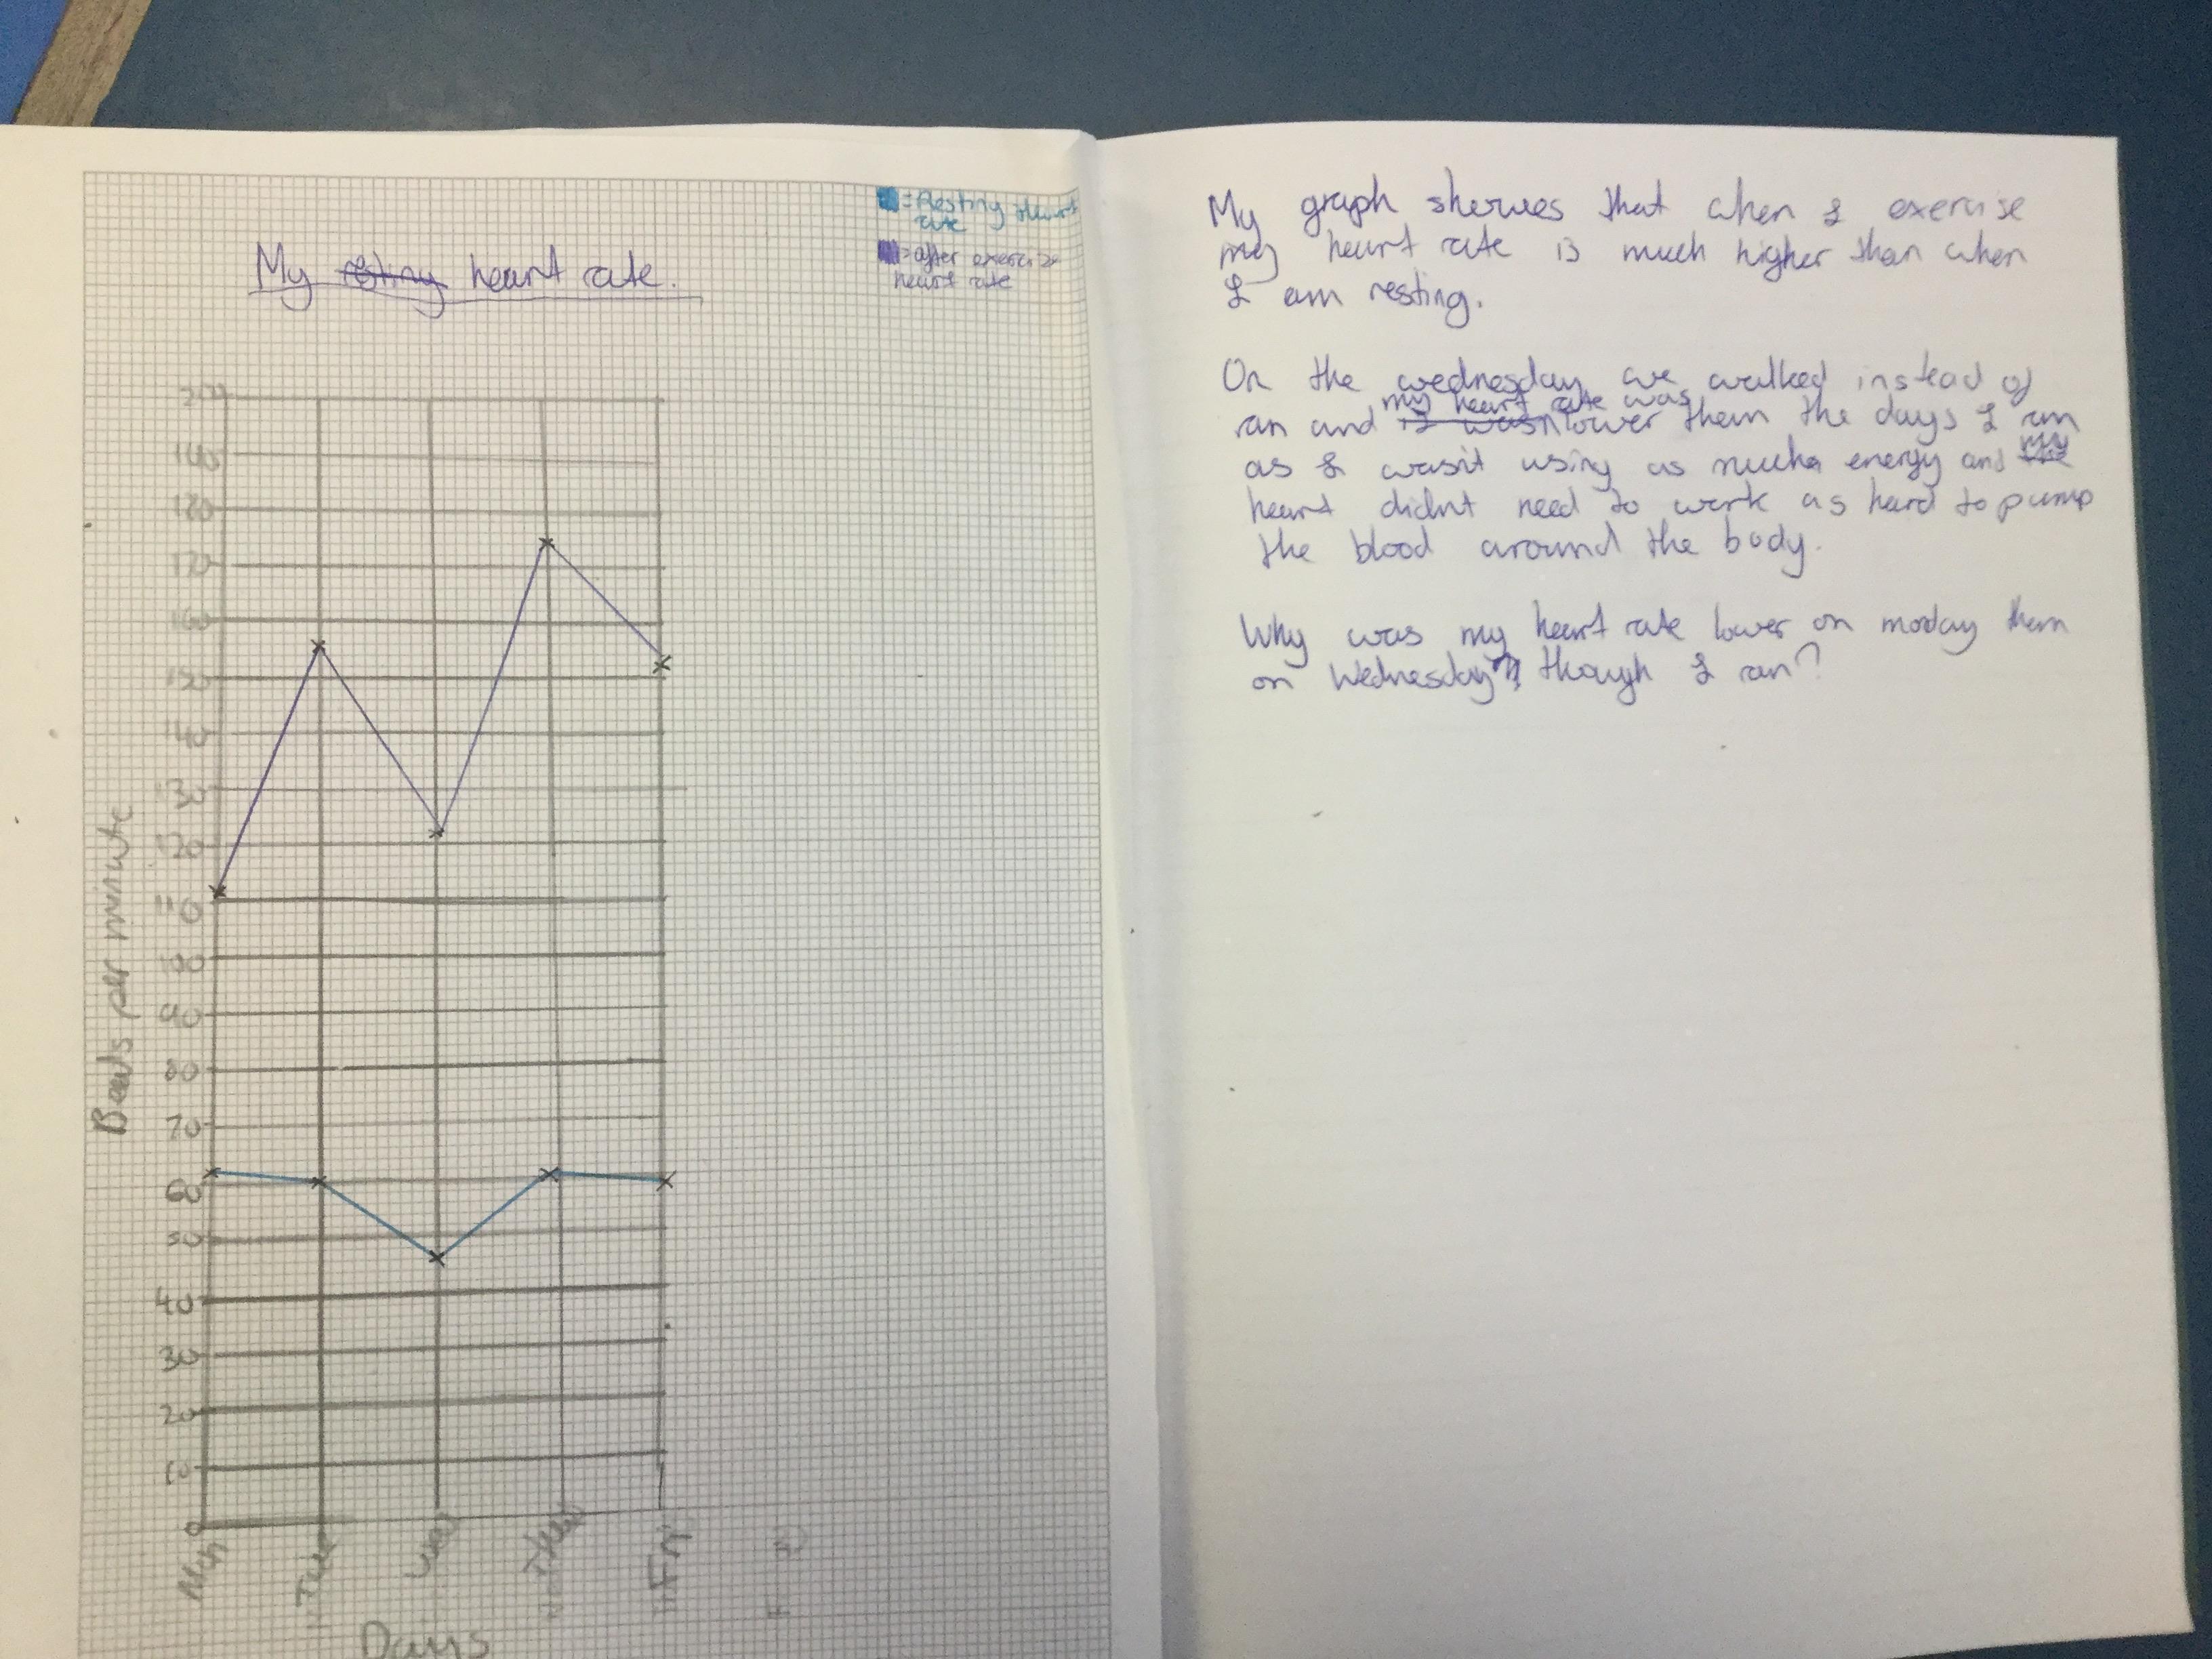 = Resting heart
rate
= after exercise
heart rate
My resting heart rate.
200
190
180
170
160
150
140
130
120
110
100
90
80
70
60
50
40
30
20
10
0
Beats per minute
Mon
Tue
Wed
Thu
Fri
Days
My graph showes that when I exercise
my heart rate is much higher than when
I am resting.
On the wednesday we walked instead of
my heart rate was
ran and it was lower then the days I ran
as I wasn't using as much energy and my
heart didnt need to work as hard to pump
the blood around the body.
Why was my heart rate lower on monday then
on Wednesday though I ran?